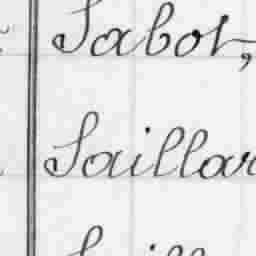 Sabot,
Saillar